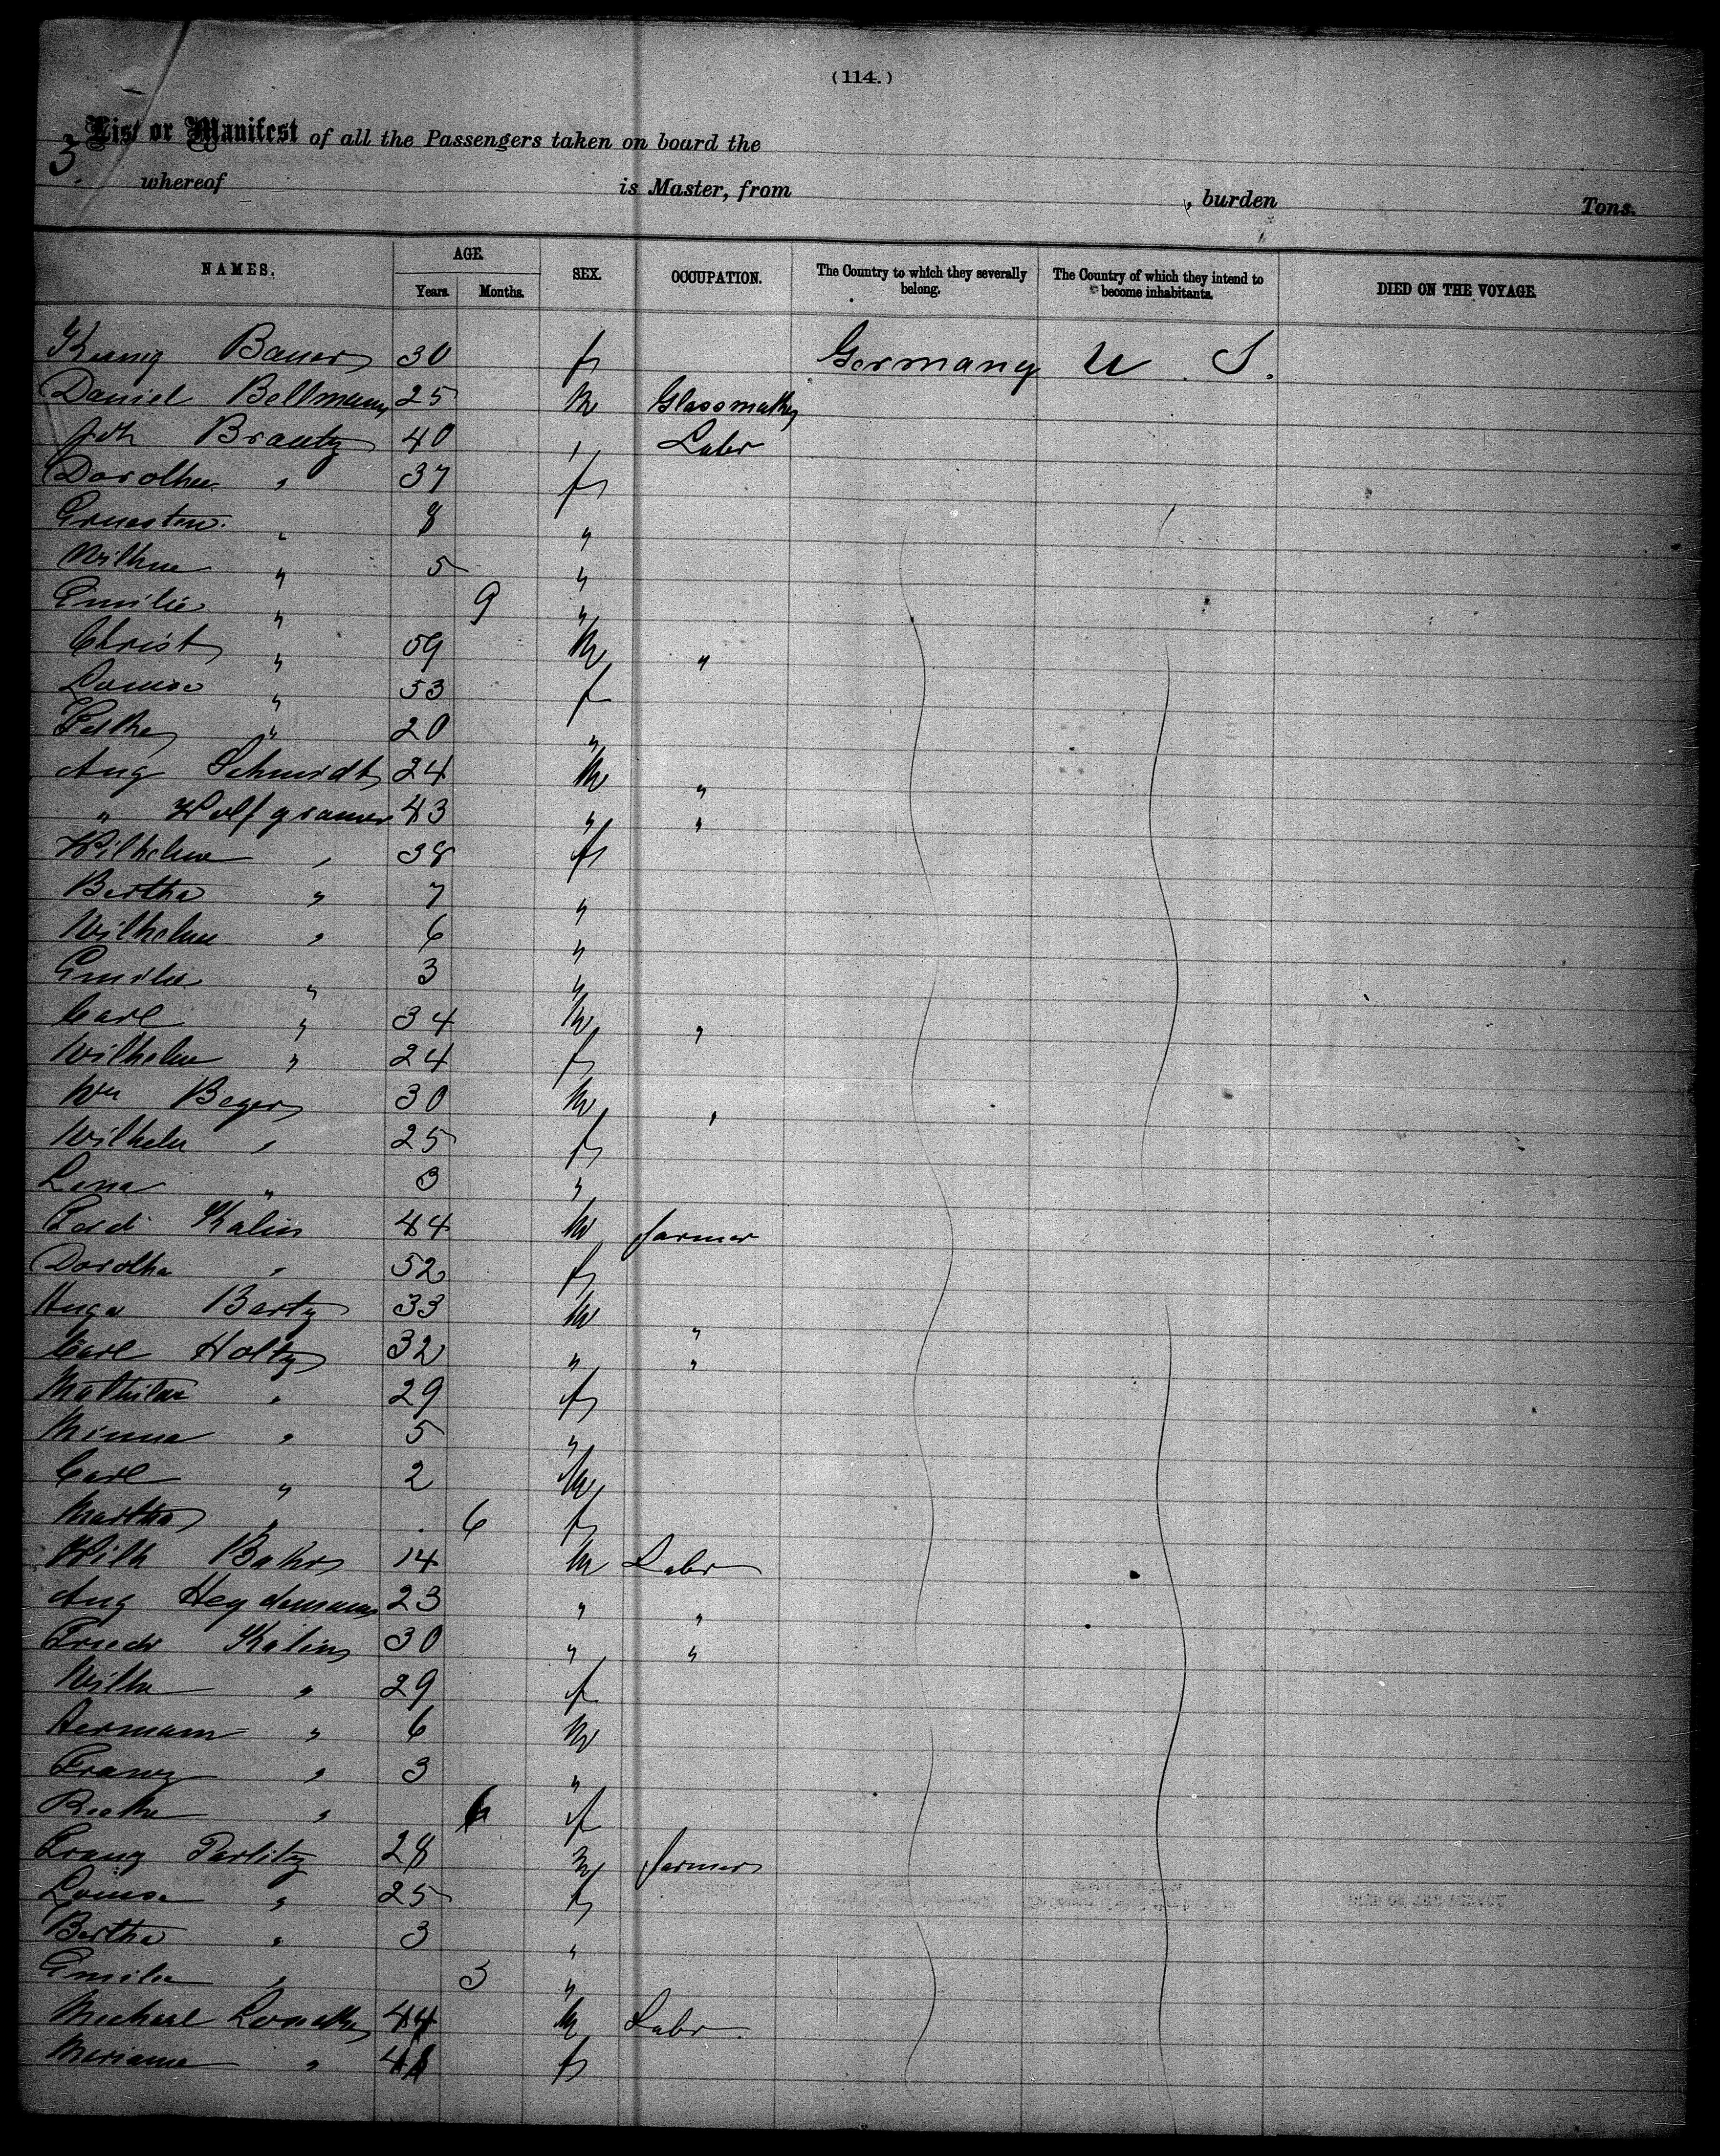 (114.)
3. List or Manifest of all the Passengers taken on board the
whereof is Master, from , burden Tons.
NAMES. AGE. SEX. OCCUPATION. The Country to which they severally belong. The Country of which they intend to become inhabitants. DIED ON THE VOYAGE.
Years. Months.
Bauer 30 f Germany U. S.
Daniel Bellmann 25 M Glassmaker
Joh Brantz 40 " Labr
Dorothea " 37 f
Ernestine " 8 "
Wilhne " 5 "
Emilie " 9 "
Christ " 59 M "
Louise " 53 f
" 20 "
Aug Schmidt 24 M "
" Wolfgramm 43 " "
Wilhelme " 38 f
Bertha " 7 "
Wilhelme " 6 "
Emilie " 3 "
Carl " 34 M "
Wilhelme " 24 f
Wm Beyer 30 M "
Wilhelm " 25 f
Lena " 3 "
Ferd Kalin 44 M farmer
Dorothea " 52 f
Hugo Bartz 33 M "
Carl Holtz 32 " "
Mathilde " 29 f
Minna " 5 "
Carl " 2 M
Martha " 6 f
Wilh 14 M Labr
Aug Heydemann 23 " "
Friedr Kalin 30 " "
Wilhe " 29 f
Hermann " 6 M
Franz " 3 "
" 6 f
Franz Parlitz 28 M farmer
Louise " 25 f
Bertha " 3 "
Emilie " 3 "
Michael 44 M Labr
Mariane " 41 f